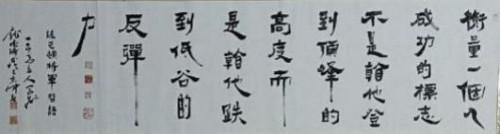 衡量一個人
成功的標志
不是看他登
到頂峰的
高度而
是看他跌
到低谷的
反彈
力
巴頓將軍